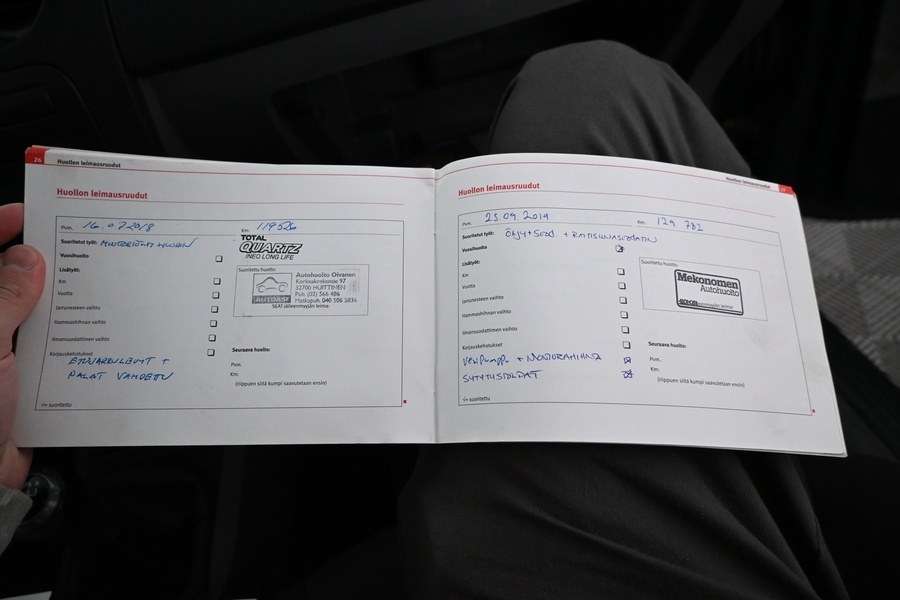 26
Huollon leimausruudut
Huollon leimausruudut
Pvm. 16.07 2018
Km: 119526
Suoritetut työt:
Vuosihuolto
TOTAL
QUARTZ
INEO LONG LIFE
Lisätyöt:
Km
Vuotta
Jarrunesteen vaihto
Hammashihnan vaihto
Ilmansuodattimen vaihto
Korjauskehotukset
ETUJARRULEVYT +
PALAT VAIHDETTU
Suoritettu huolto:
AUTOASI
Autohuolto Oivanen
Korkeakoskentie 97
32700 HUITTINEN
Puh. (02) 566 486
Matkapuh. 040 506 5836
SEAT-jälleenmyyjän leima:
Seuraava huolto:
Pvm:
Km:
(riippuen siitä kumpi saavutetaan ensin)
√= suoritettu
Huollon leimausruudut
27
Huollon leimausruudut
Pvm. 25.09 2019
Km: 129 782
Suoritetut työt: Öljy + Suod. + RAITISILMASUODATIN
Vuosihuolto
Lisätyöt:
Km
Vuotta
Jarrunesteen vaihto
Hammashihnan vaihto
Ilmansuodattimen vaihto
Korjauskehotukset
VESIPUMPPU + MONIURAHIHNA
SYTYTYSTULPAT
Suoritettu huolto:
Mekonomen
Autohuolto
Seuraava huolto:
Pvm.
Km:
(riippuen siitä kumpi saavutetaan ensin)
√= suoritettu